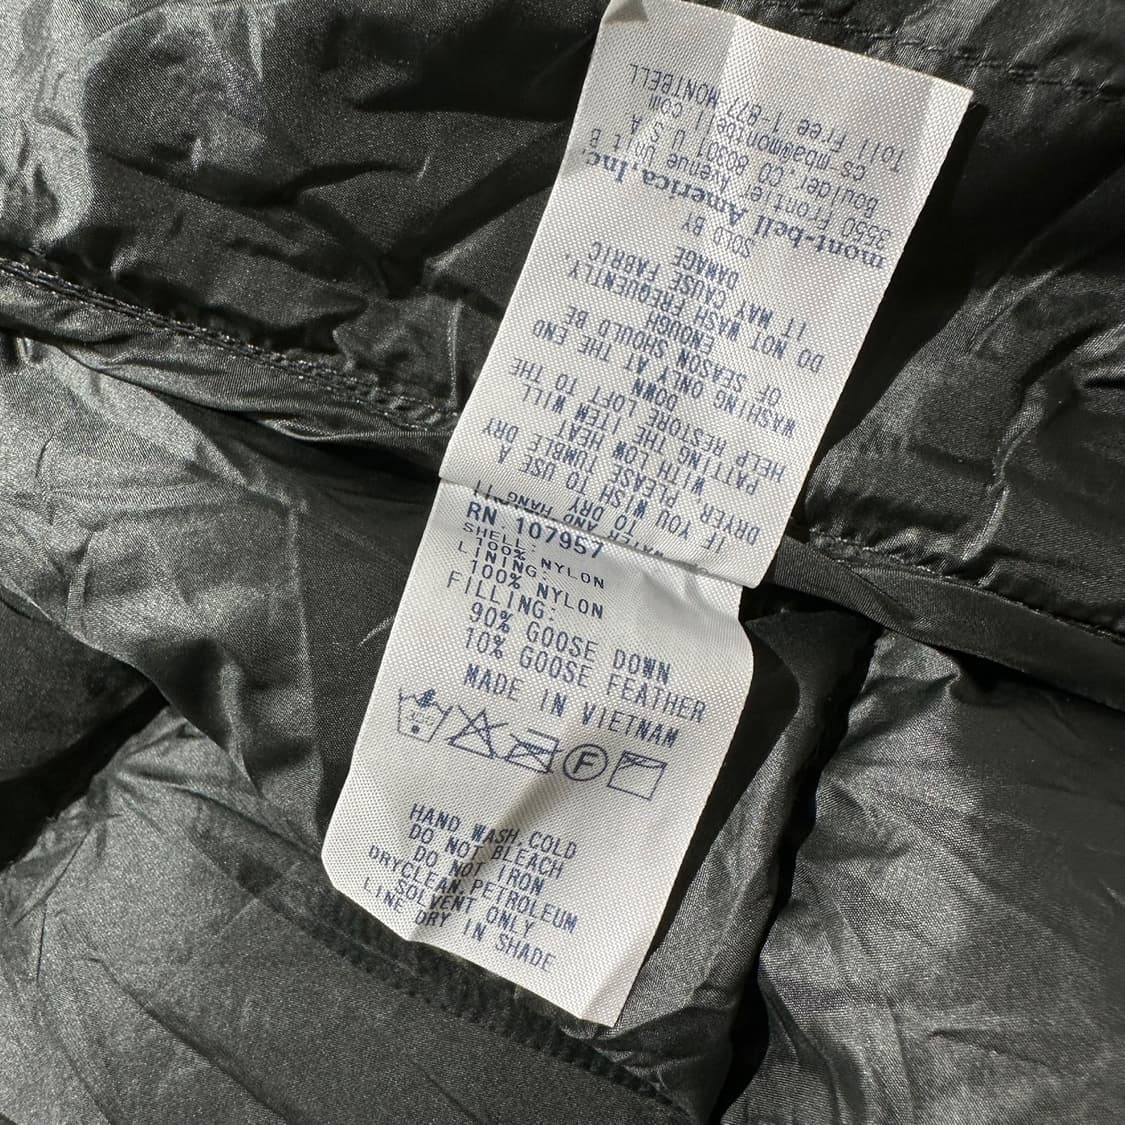 RN 107957
SHELL:
100% NYLON
LINING:
100% NYLON
FILLING:
90% GOOSE DOWN
10% GOOSE FEATHER
MADE IN VIETNAM
F
HAND WASH,COLD
DO NOT BLEACH
DO NOT IRON
DRYCLEAN,PETROLEUM
SOLVENT ONLY
LINE DRY IN SHADE
WATER AND HANG
IF YOU WISH TO USE A
DRYER TO DRY
PLEASE TUMBLE DRY
WITH LOW HEAT
PATTING THE ITEM WILL
HELP RESTORE LOFT TO THE
DOWN
WASHING ONLY AT THE END
OF SEASON SHOULD BE
ENOUGH
DO NOT WASH FREQUENTLY,
IT MAY CAUSE FABRIC
DAMAGE
SOLD BY
mont-bell America, Inc.
3550 Frontier Avenue Unit B
Boulder, CO 80301 U S A
cs mba@montbell com
Toll Free 1-877-MONTBELL